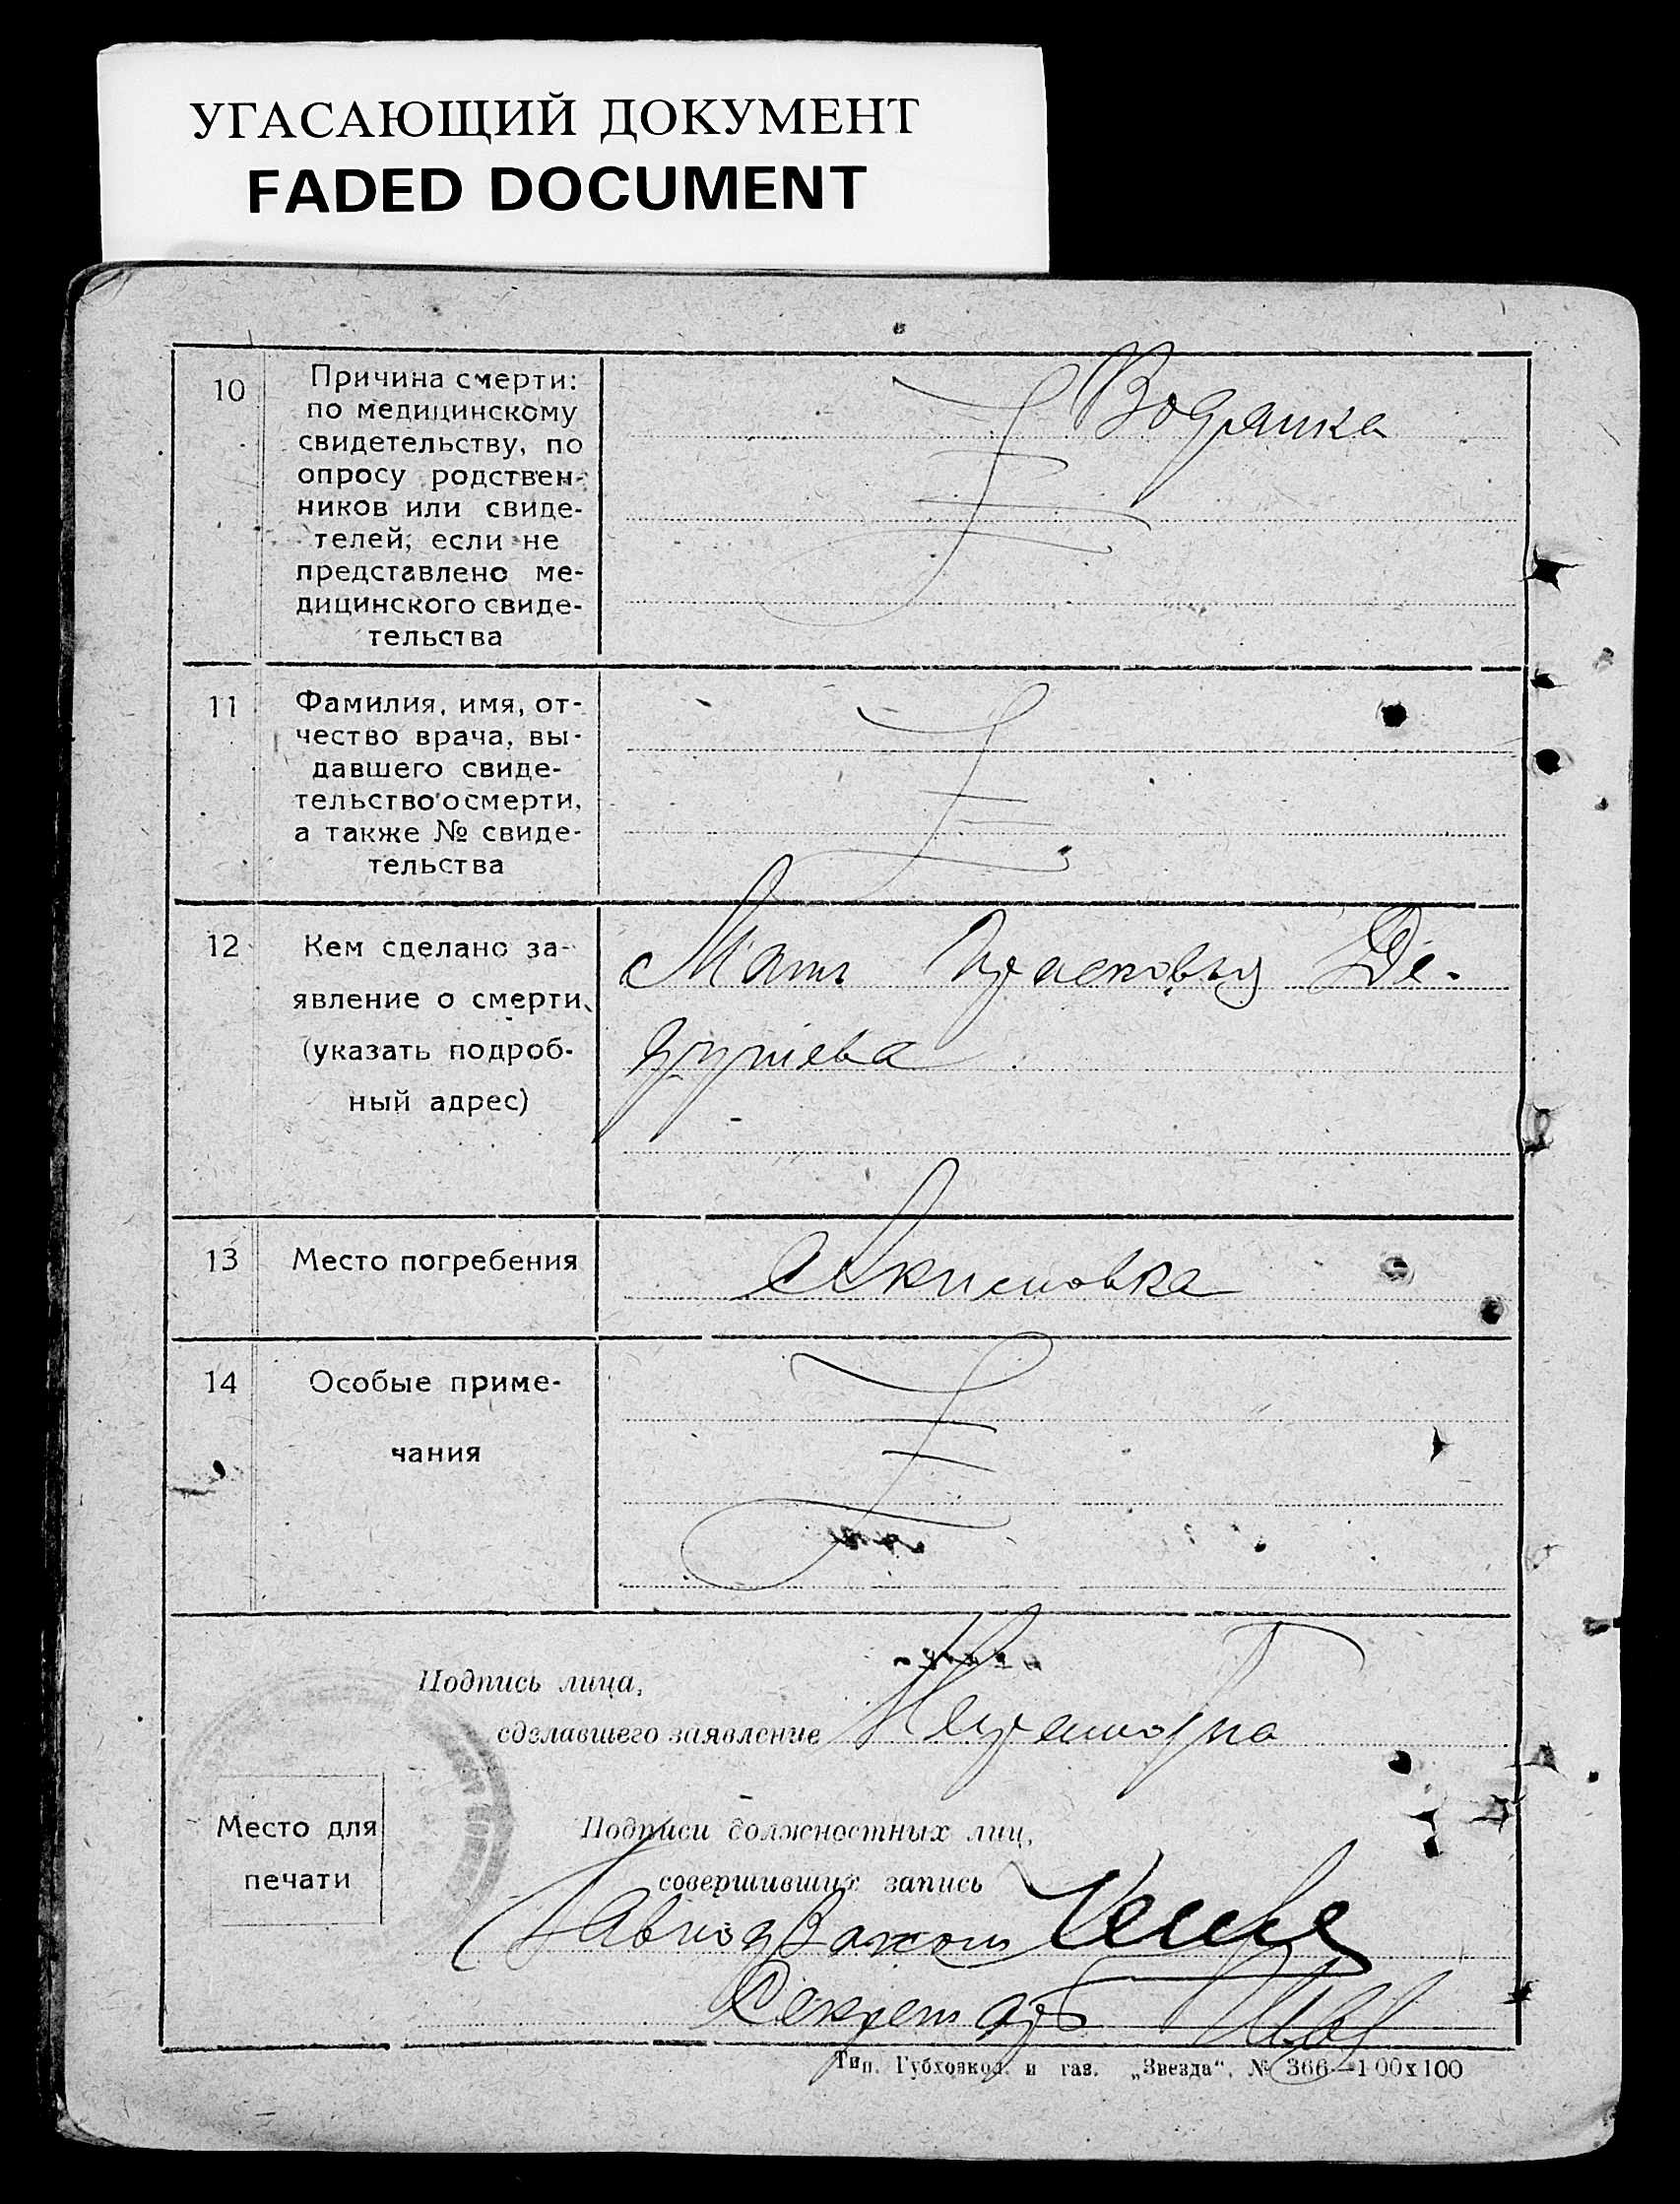 УГАСАЮЩИЙ ДОКУМЕНТ
FADED DOCUMENT
10
Причина смерти:
по медицинскому
свидетельству, по
опросу родствен-
ников или свиде-
телей, если не
представлено ме-
дицинского свиде-
тельства
Водянка
11
Фамилия, имя, от-
чество врача, вы-
давшего свиде-
тельство о смерти,
а также № свиде-
тельства
12
Кем сделано за-
явление о смерти
(указать подроб-
ный адрес)
Мать Прасковья
13
Место погребения
14
Особые приме-
чания
Подпись лица,
сделавшего заявление
Неграмотна
Место для
печати
Подписи должностных лиц,
совершивших запись
Секретарь
Тип. Губхозкол. и газ. „Звезда“, № 366—100х100